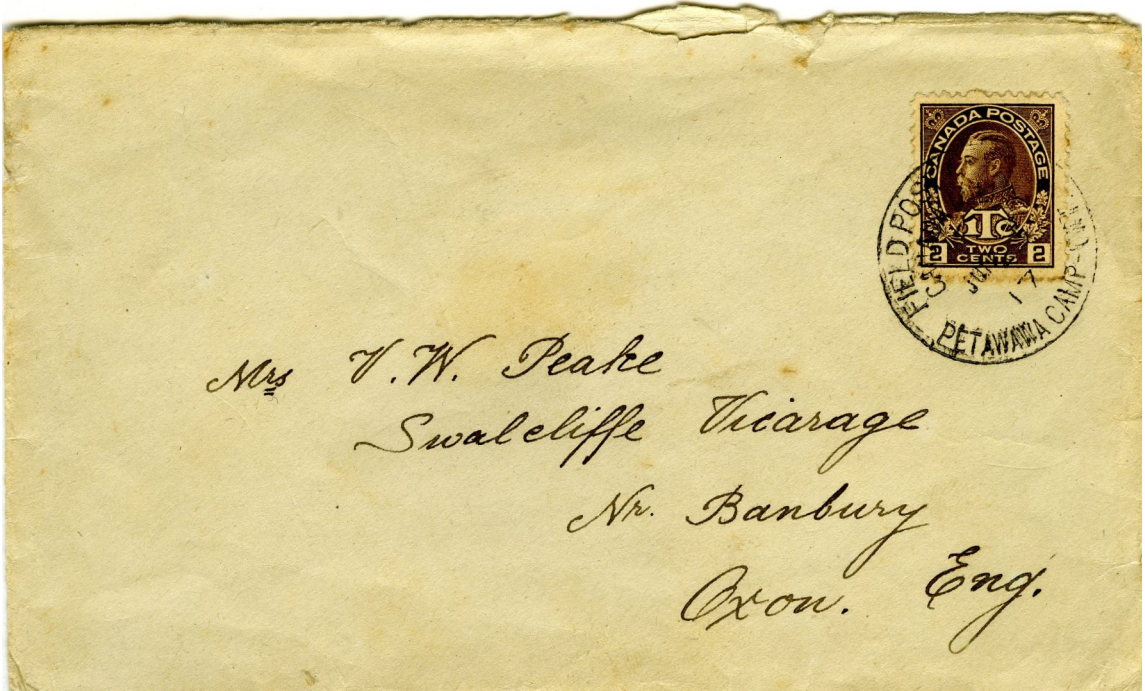 CANADA POSTAGE
1Tc
2 TWO CENTS 2
FIELD POS
PETAWAWA CAMP-
17
Mrs V. W. Peake
Swalcliffe Vicarage
Nr. Banbury
Oxon. Eng.